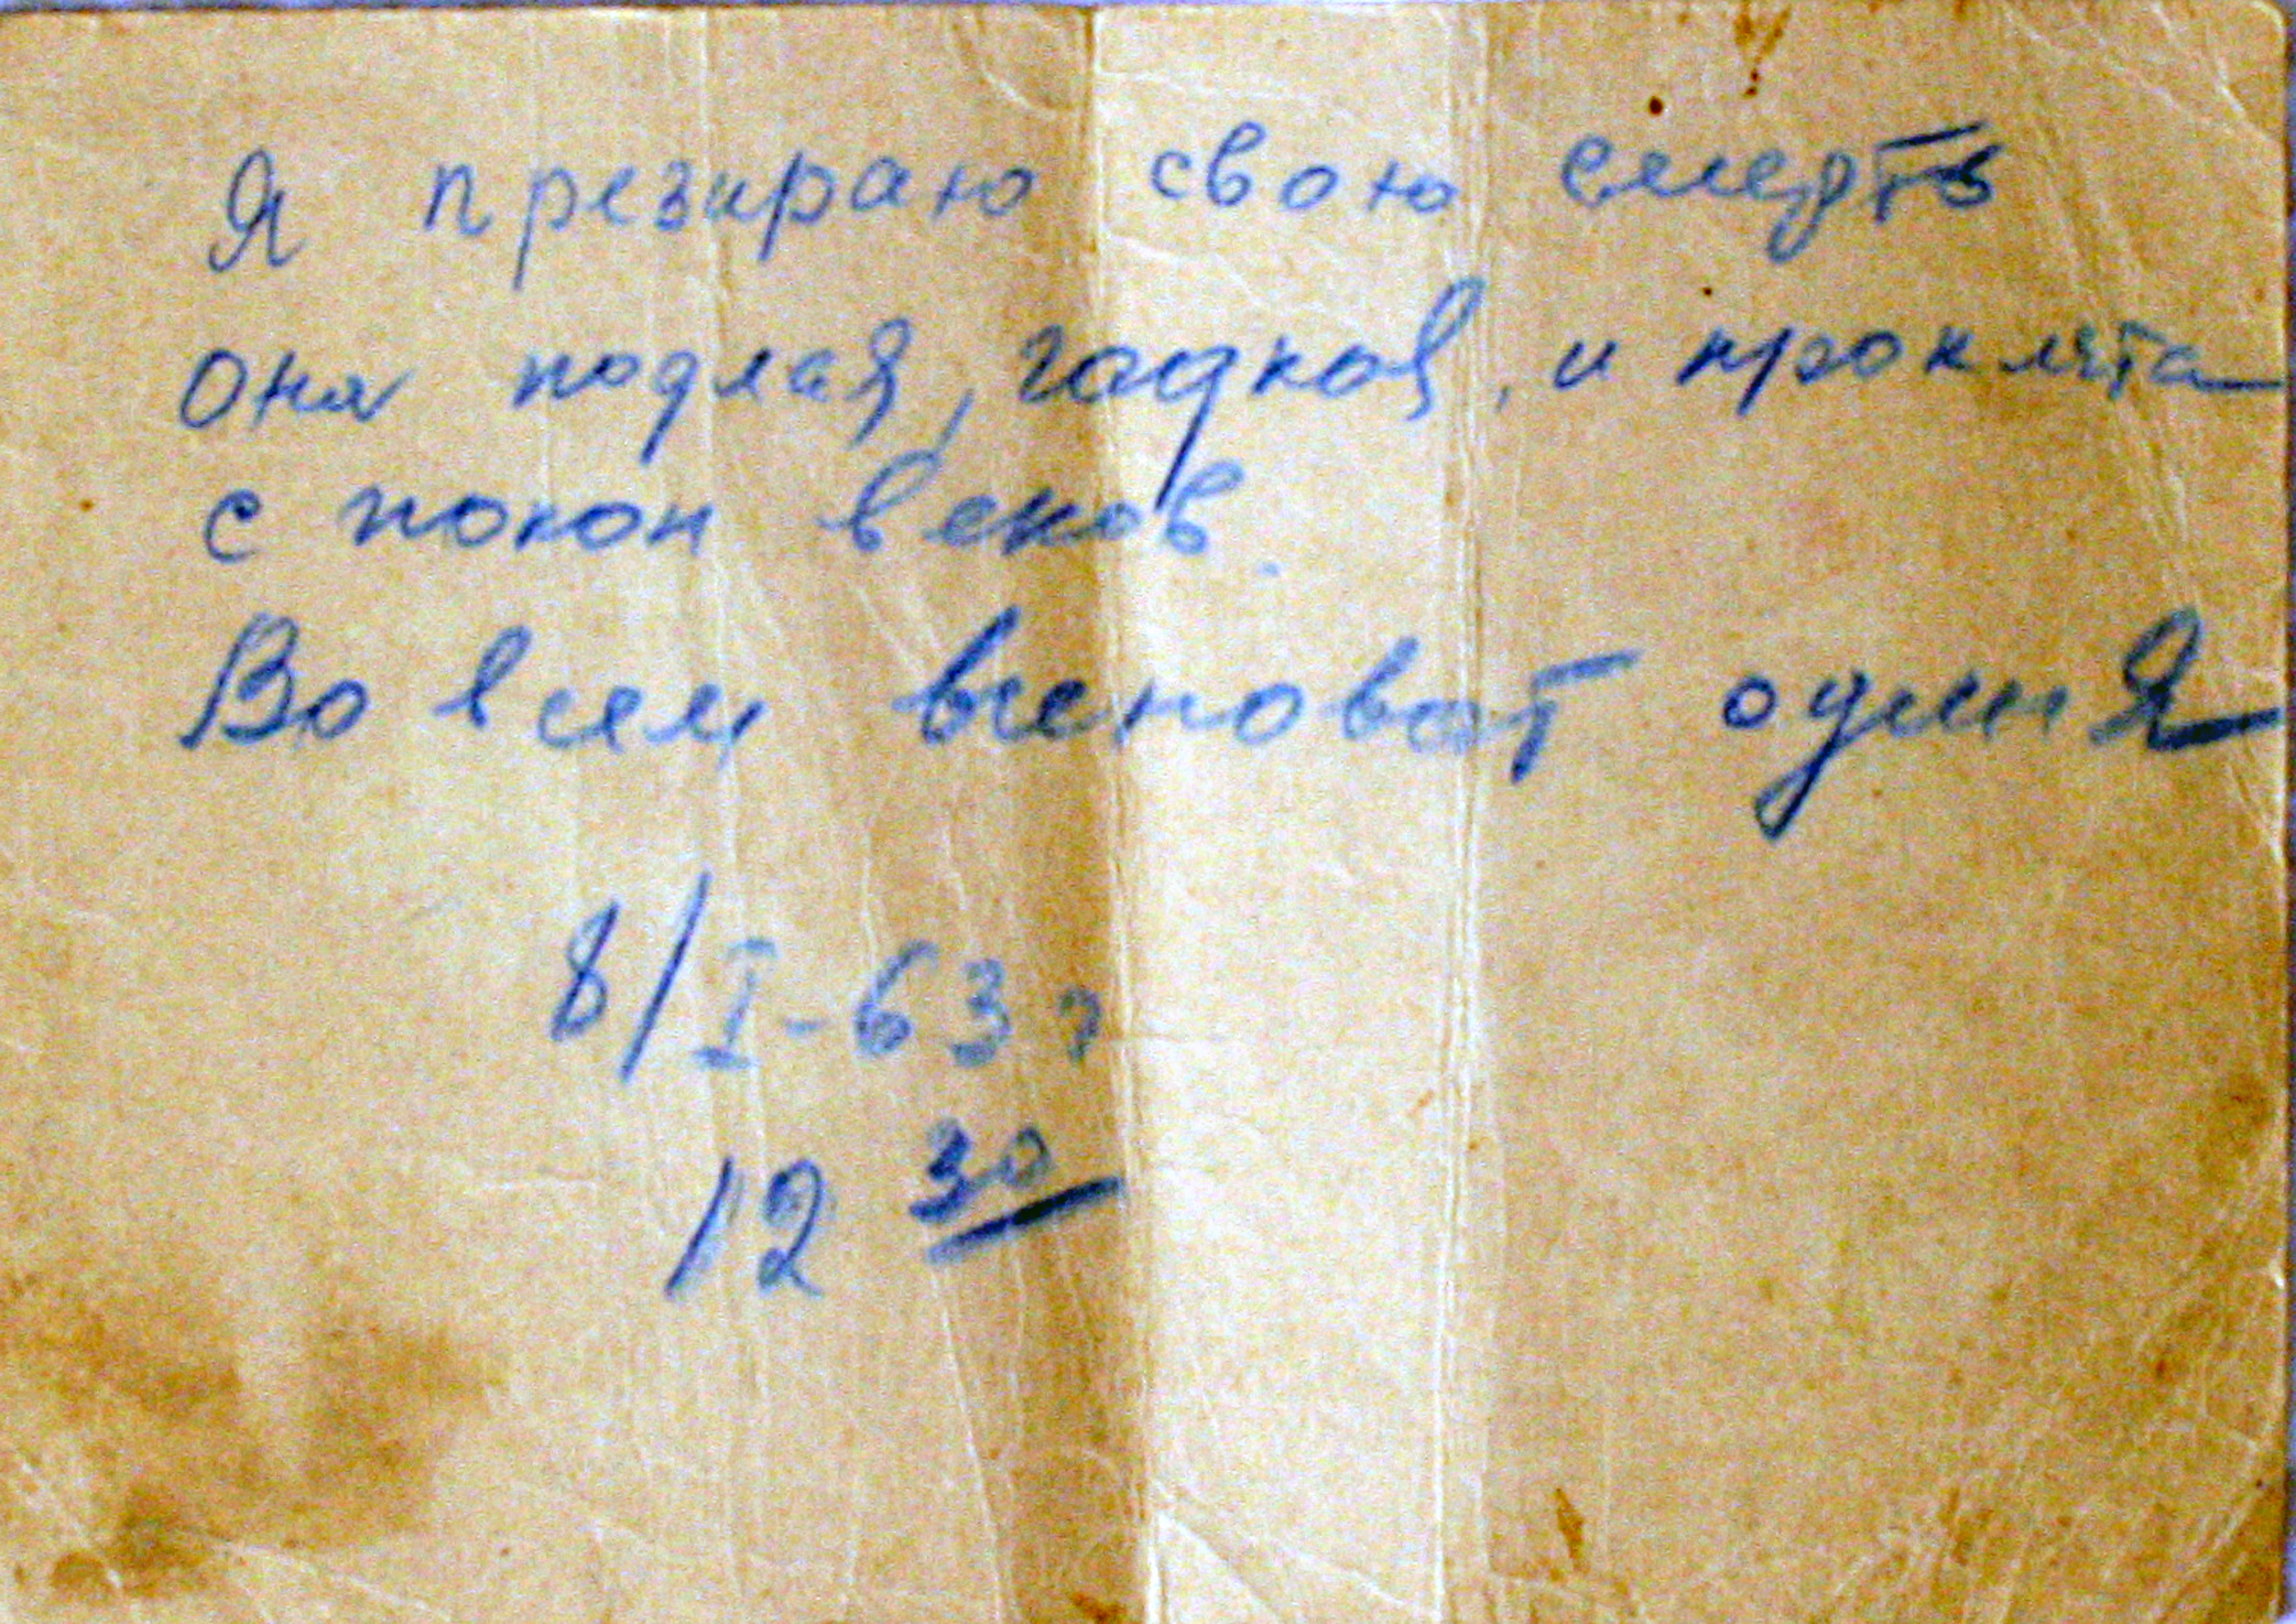 Я презираю свою смерть
Она подлая, гадкая, и проклята
с покон веков.
Во всем виноват один Я
8/I-63 г
12 30